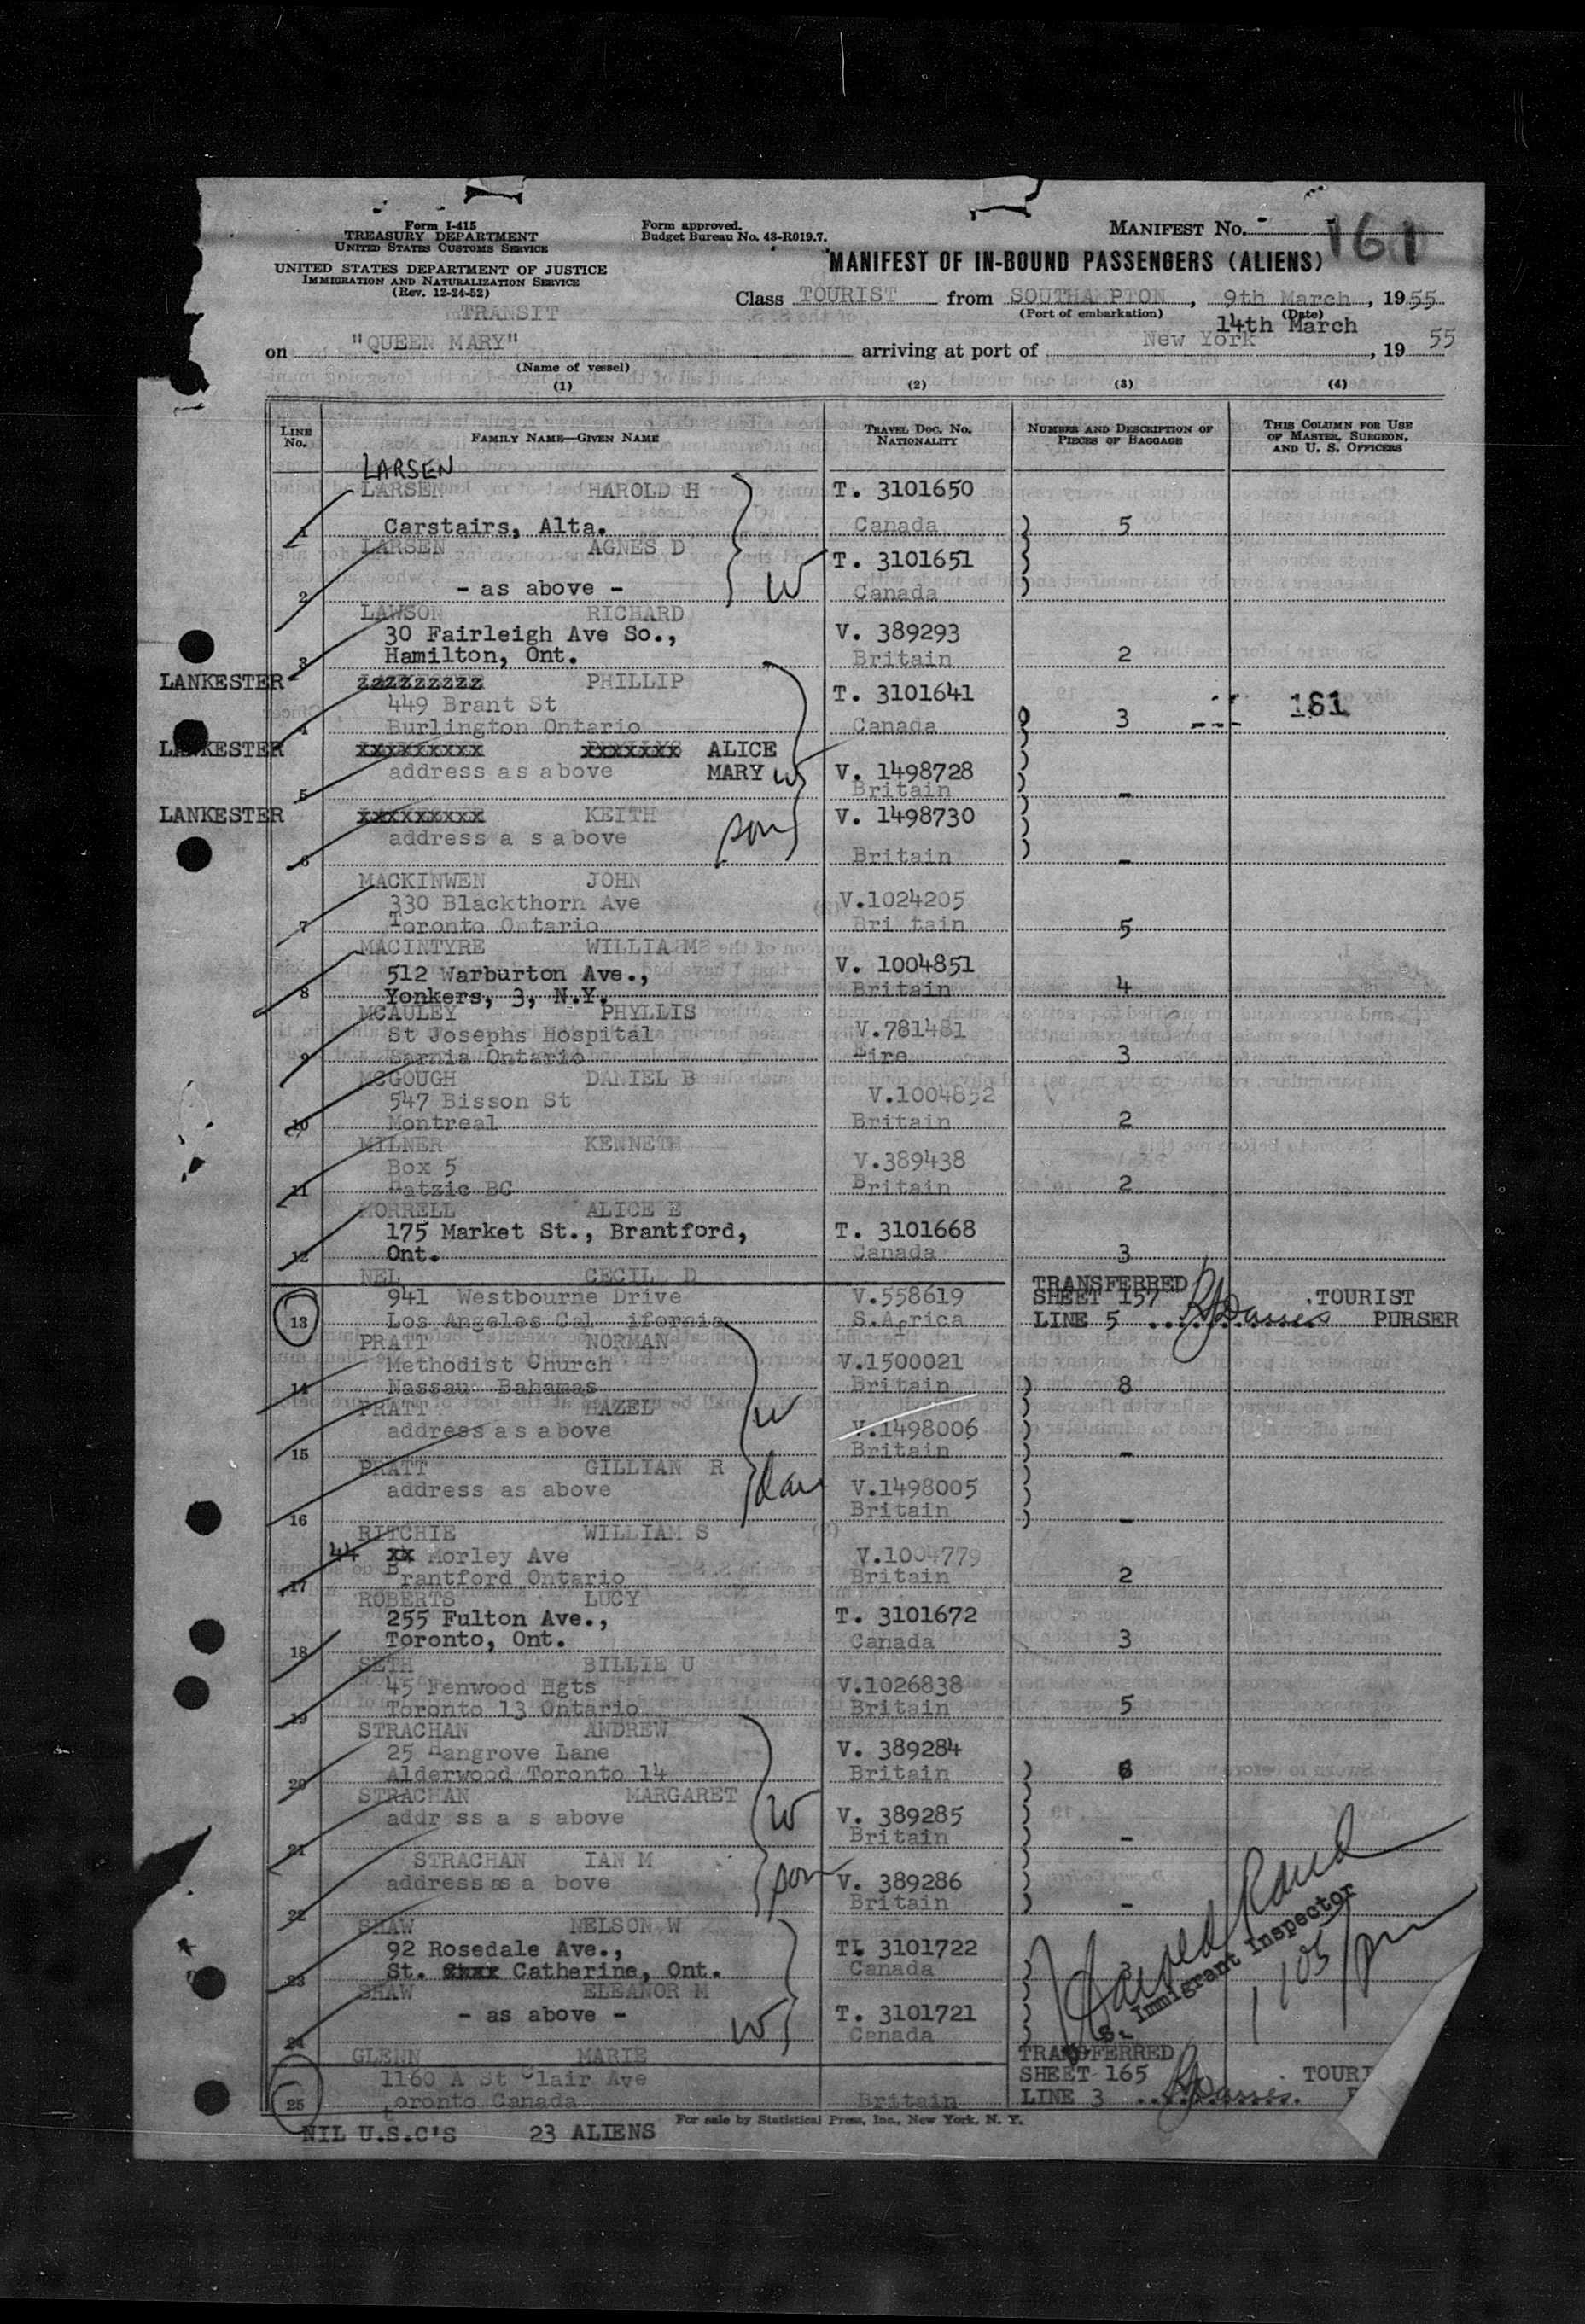 Form I-415
TREASURY DEPARTMENT
UNITED STATES CUSTOMS SERVICE
UNITED STATES DEPARTMENT OF JUSTICE
IMMIGRATION AND NATURALIZATION SERVICE
(Rev. 12-24-52)
Form approved.
Budget Bureau No. 43-R019.7.
MANIFEST No. 161
MANIFEST OF IN-BOUND PASSENGERS (ALIENS)
Class TOURIST from SOUTHAMPTON, 9th March, 1955
(Port of embarkation) (Date)
TRANSIT
14th March
on "QUEEN MARY" arriving at port of New York, 19 55
(Name of vessel)
(1) (2) (3) (4)
LINE No. FAMILY NAME—GIVEN NAME TRAVEL DOC. NO. NATIONALITY NUMBER AND DESCRIPTION OF PIECES OF BAGGAGE THIS COLUMN FOR USE OF MASTER, SURGEON, AND U. S. OFFICERS
LARSEN
LARSEN HAROLD H T. 3101650
1 Carstairs, Alta. Canada ) 5
LARSEN AGNES D T. 3101651
2 - as above - W Canada )
LAWSON RICHARD
30 Fairleigh Ave So., V. 389293
3 Hamilton, Ont. Britain 2
LANKESTER zzzzzzzzz PHILLIP T. 3101641
449 Brant St 161
4 Burlington Ontario Canada ) 3 ---
LANKESTER xxxxxxxxx xxxxxxx ALICE
address as above MARY W V. 1498728
5 Britain ) -
LANKESTER xxxxxxxxx KEITH V. 1498730
address a s above son
6 Britain ) -
MACKINWEN JOHN
330 Blackthorn Ave V.1024205
7 Toronto Ontario Bri tain 5
MACINTYRE WILLIAM
512 Warburton Ave., V. 1004851
8 Yonkers, 3, N.Y. Britain 4
MCAULEY PHYLLIS
St Josephs Hospital V.781481
9 Sarnia Ontario Eire 3
MCGOUGH DANIEL B
547 Bisson St V.1004852
10 Montreal Britain 2
MILNER KENNETH
Box 5 V.389438
11 Hatzic BC Britain 2
MORRELL ALICE E
175 Market St., Brantford, T. 3101668
12 Ont. Canada 3
NEL CECIL D TRANSFERRED
941 Westbourne Drive V.558619 SHEET 157 TOURIST
13 Los Angeles Cal ifornia S.Africa LINE 5 PURSER
PRATT NORMAN
Methodist Church V.1500021
14 Nassau Bahamas Britain ) 8
PRATT HAZEL W
address a s a bove V.1498006
15 Britain ) -
PRATT GILLIAN R dau
address as above V.1498005
16 Britain ) -
RITCHIE WILLIAM S
44 xx Morley Ave V.1004779
17 Brantford Ontario Britain 2
ROBERTS LUCY
255 Fulton Ave., T. 3101672
18 Toronto, Ont. Canada 3
SETH BILLIE U
45 Fenwood Hgts V.1026838
19 Toronto 13 Ontario Britain 5
STRACHAN ANDREW
25 Hangrove Lane V. 389284
20 Alderwood Toronto 14 Britain ) 6
STRACHAN MARGARET
addr ss a s above W V. 389285
21 Britain ) -
STRACHAN IAN M
address as a bove son V. 389286
22 Britain ) -
SHAW NELSON W
92 Rosedale Ave., TL 3101722
23 St. xxxx Catherine, Ont. Canada )
SHAW ELEANOR M
- as above - W T. 3101721
24 Canada )
Immigrant Inspector
1105 pm
GLENN MARIE TRANSFERRED
1160 A St Clair Ave SHEET 165
25 toronto Canada Britain LINE 3
For sale by Statistical Press, Inc., New York, N. Y.
NIL U.S.C'S 23 ALIENS